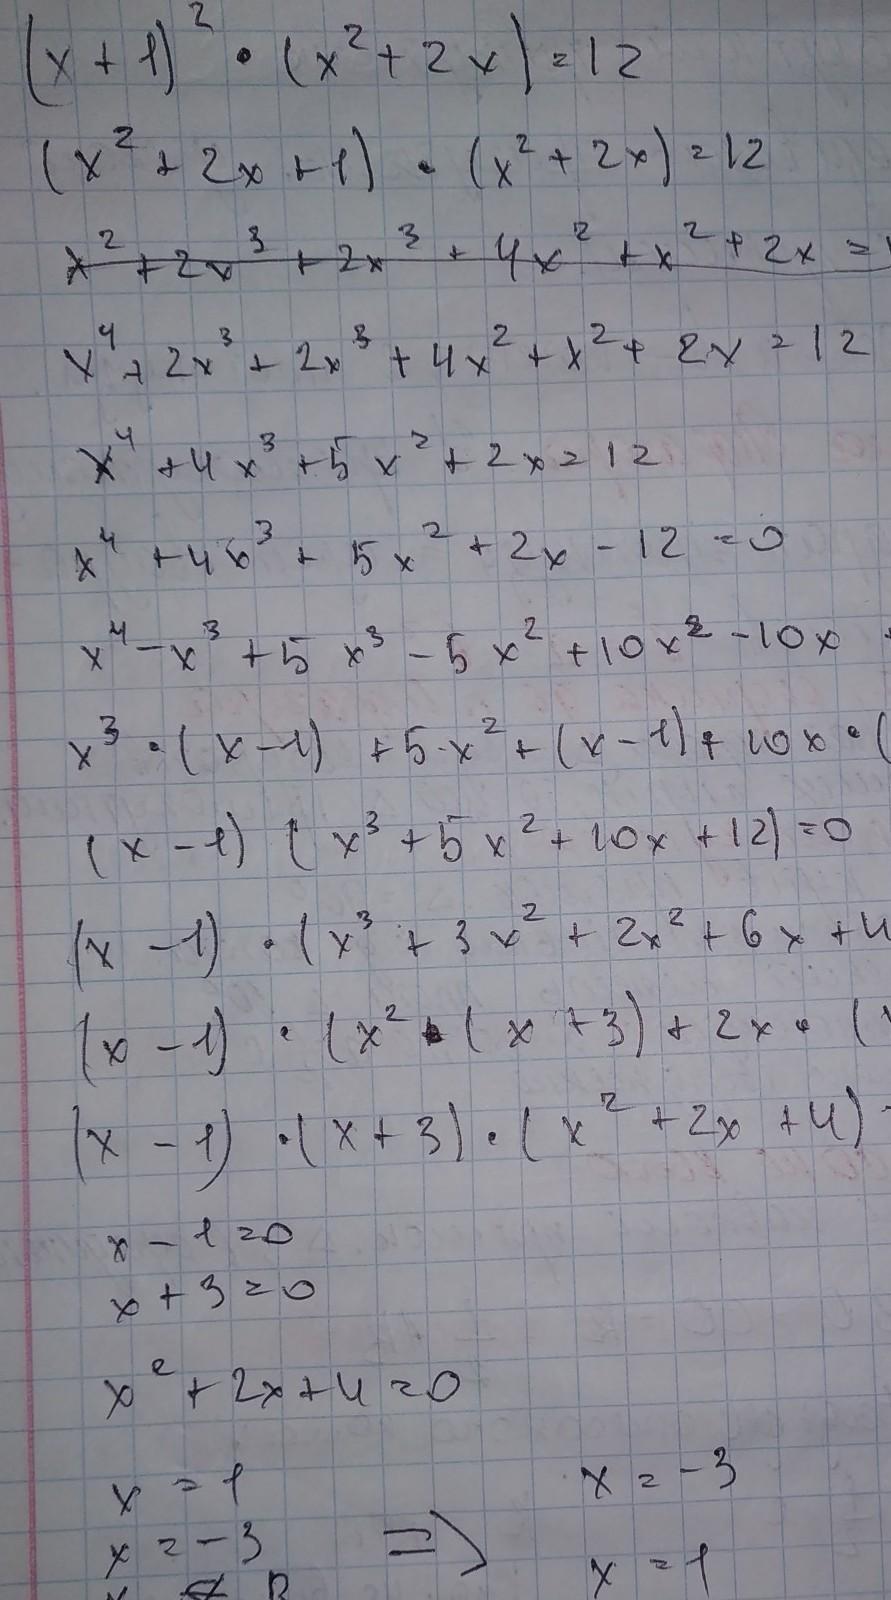 (x+1)² · (x²+2x)=12
(x²+2x+1) · (x²+2x)=12
x²+2x³+2x³+4x²+x²+2x=
x⁴+2x³+2x³+4x²+x²+2x=12
x⁴+4x³+5x²+2x=12
x⁴+4x³+5x²+2x-12=0
x⁴-x³+5x³-5x²+10x²-10x
x³·(x-1)+5·x²+(x-1)+10x·(
(x-1)(x³+5x²+10x+12)=0
(x-1)·(x³+3x²+2x²+6x+4
(x-1)·(x²·(x+3)+2x·(
(x-1)·(x+3)·(x²+2x+4)
x-1=0
x+3=0
x²+2x+4=0
x=1
x=-3
⇒
x=-3
x=1